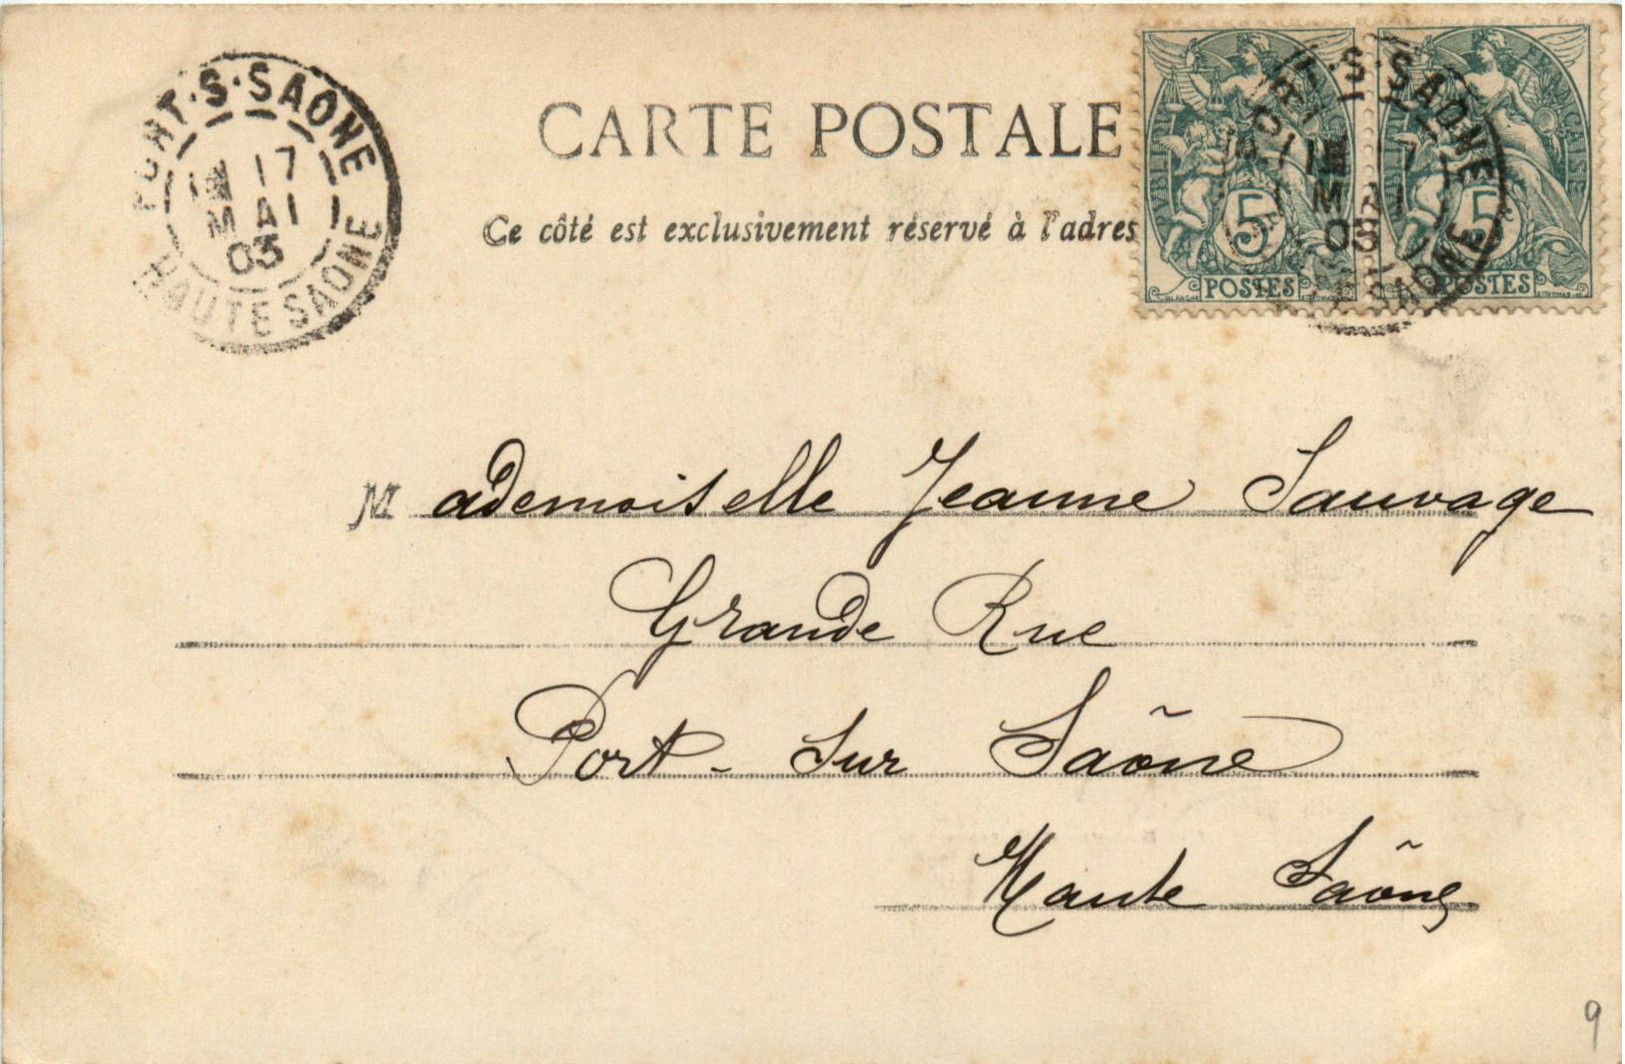 PORT·S·SAONE
17
MAI
03
HAUTE SAONE
CARTE POSTALE
Ce côté est exclusivement réservé à l'adres
RÉPUBLIQUE FRANÇAISE
5
POSTES
5
POSTES
T·S·SAONE
17
MAI
03
SAONE
Mademoiselle Jeanne Sauvage
Grande Rue
Port-sur Saône
Haute Saône
9